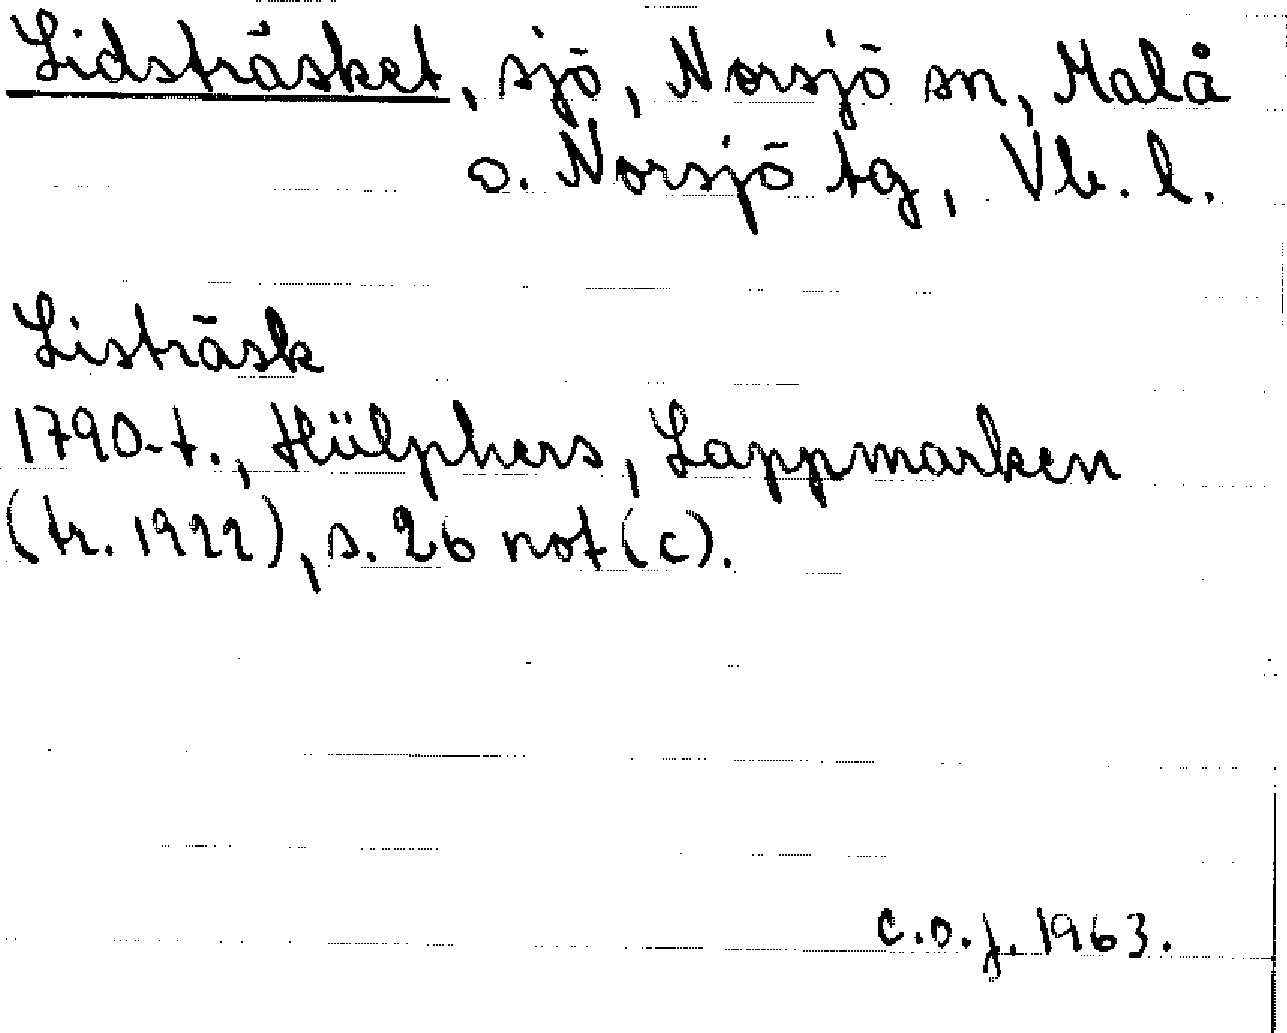 Lidsträsket, sjö, Norsjö sn, Malå
o. Norsjö tg, Vb. l.
Listräsk
1790-t., Hülphers, Lappmarken
(tr. 1922), s. 26 not (c).
C.O.J. 1963.